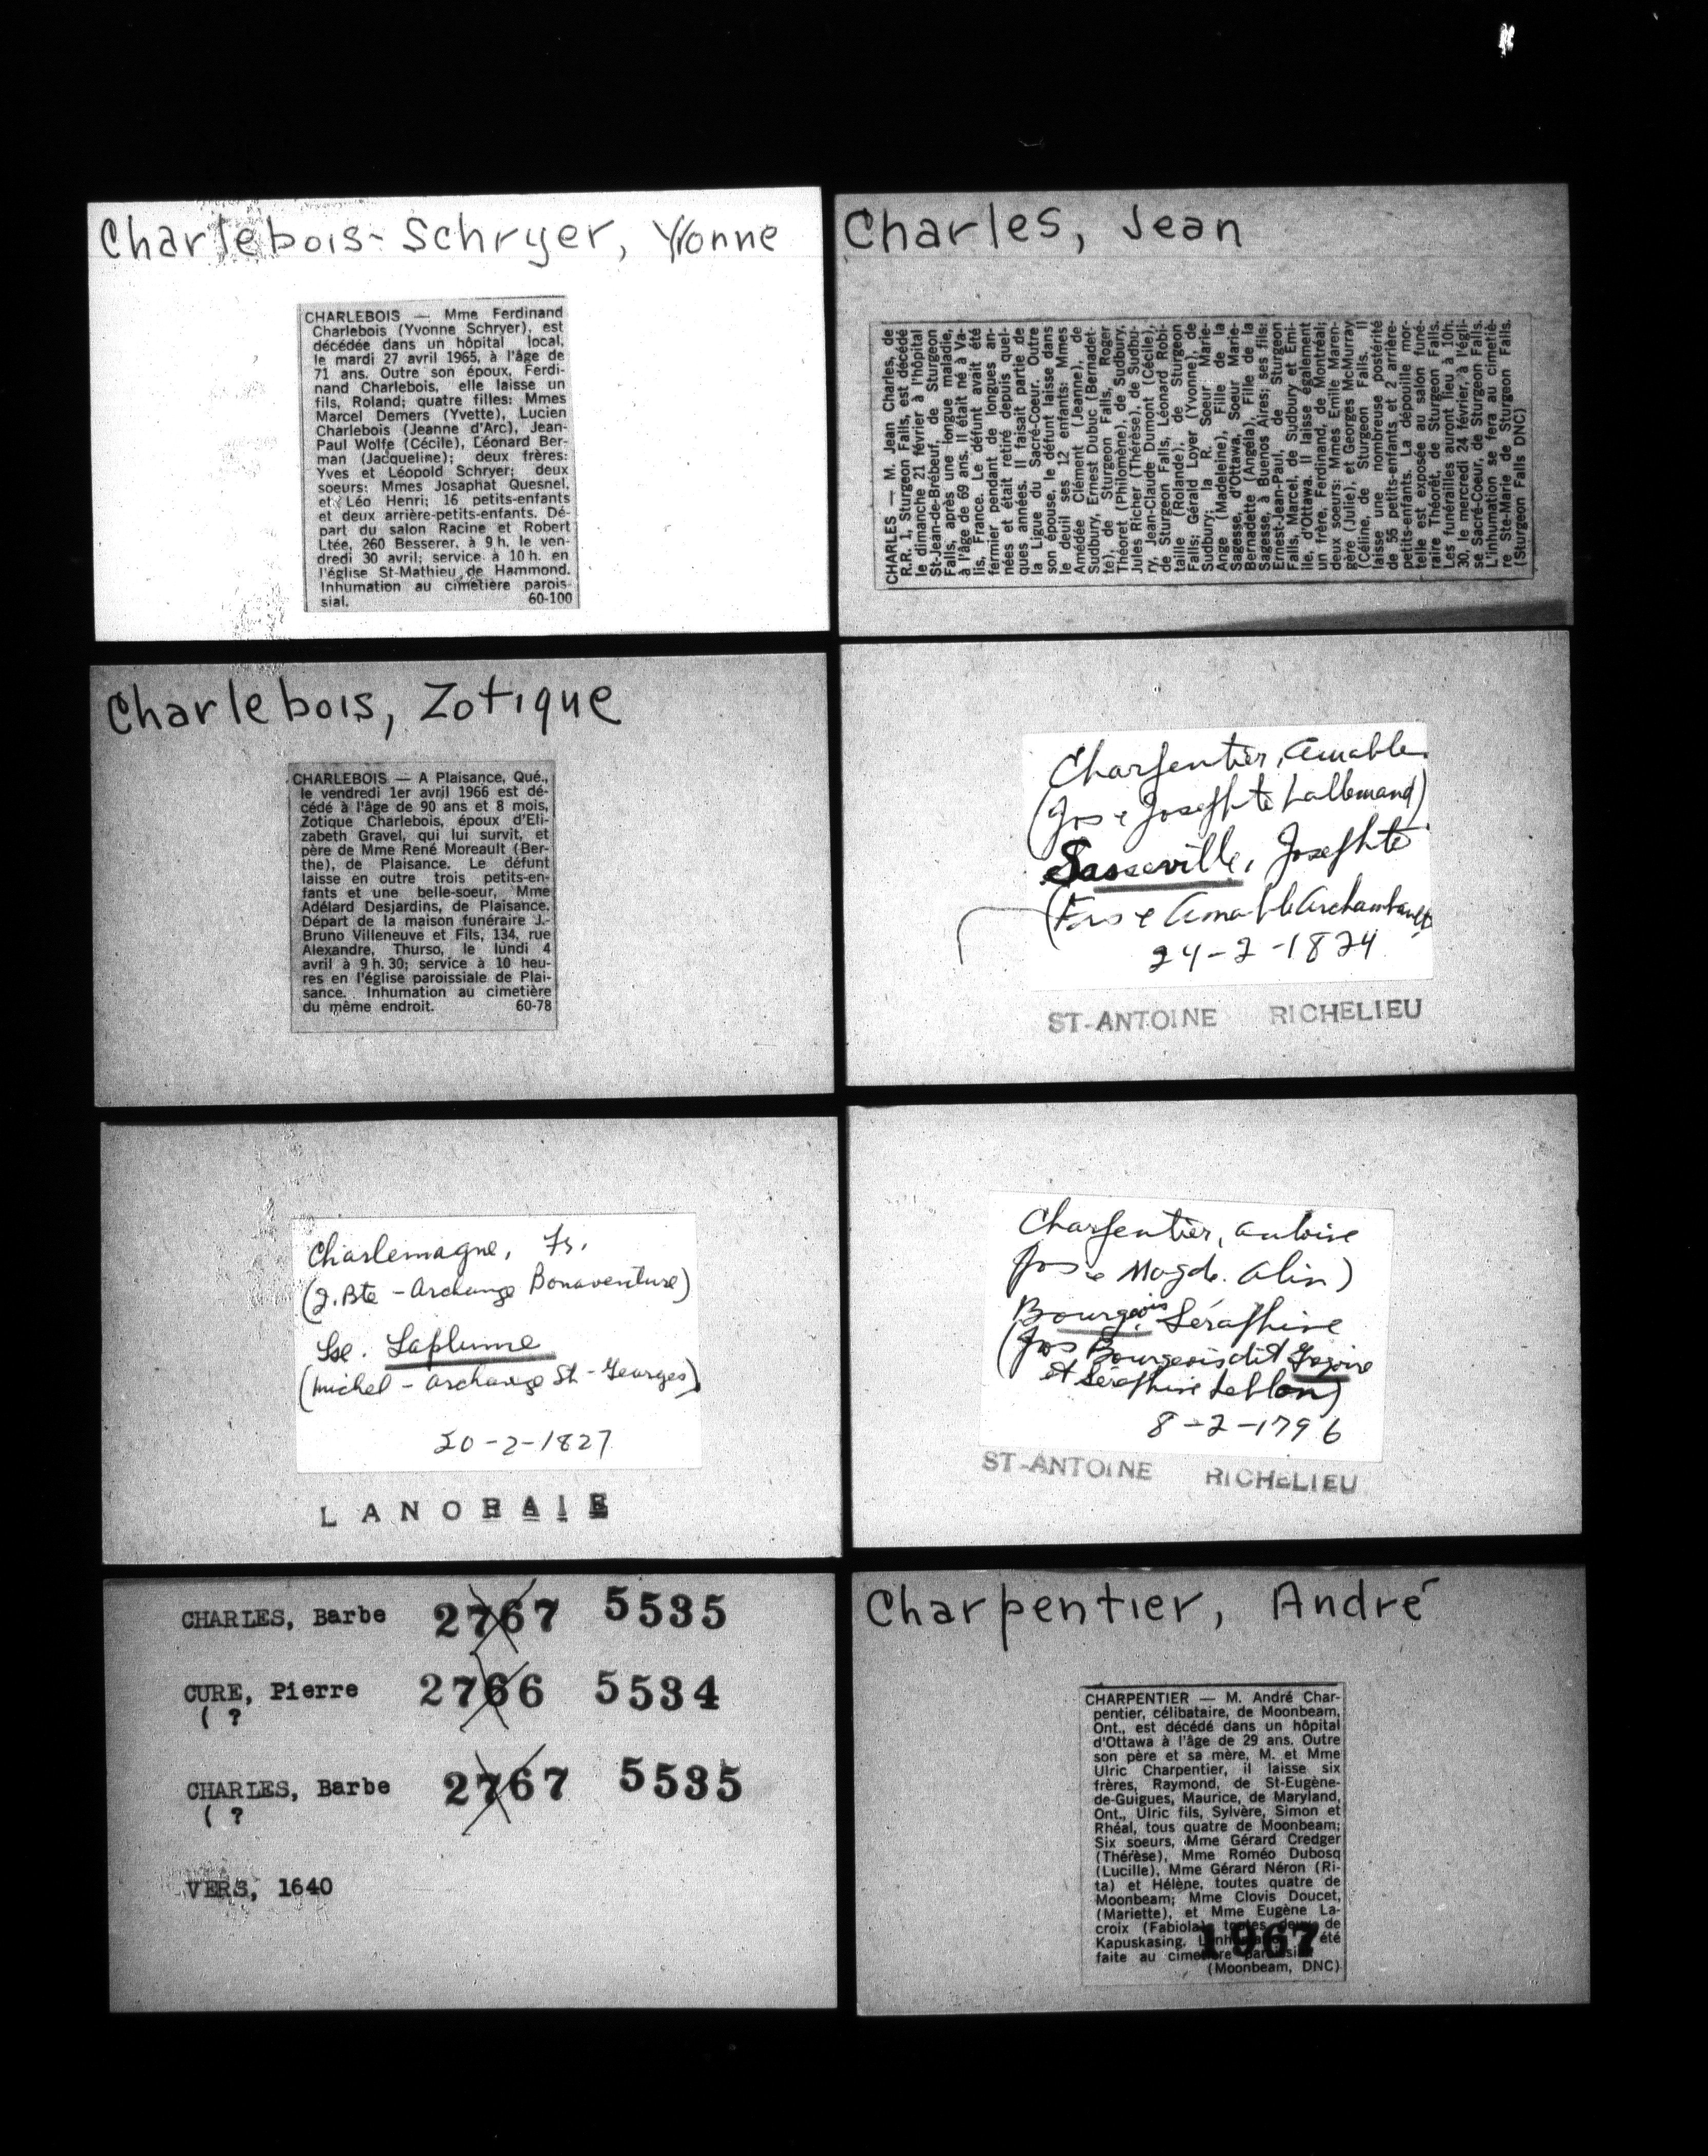 Charlebois-Schryer, Yvonne
CHARLEBOIS — Mme Ferdinand
Charlebois (Yvonne Schryer), est
décédée dans un hôpital local,
le mardi 27 avril 1965, à l'âge de
71 ans. Outre son époux, Ferdi-
nand Charlebois, elle laisse un
fils, Roland; quatre filles: Mmes
Marcel Demers (Yvette), Lucien
Charlebois (Jeanne d'Arc), Jean-
Paul Wolfe (Cécile), Léonard Ber-
man (Jacqueline); deux frères:
Yves et Léopold Schryer; deux
soeurs: Mmes Josaphat Quesnel,
et Léo Henri; 16 petits-enfants
et deux arrière-petits-enfants. Dé-
part du salon Racine et Robert
Ltée, 260 Besserer, à 9 h. le ven-
dredi 30 avril; service à 10 h. en
l'église St-Mathieu de Hammond.
Inhumation au cimetière parois-
sial. 60-100
Charlebois, Zotique
CHARLEBOIS — A Plaisance, Qué.,
le vendredi 1er avril 1966 est dé-
cédé à l'âge de 90 ans et 8 mois,
Zotique Charlebois, époux d'Eli-
zabeth Gravel, qui lui survit, et
père de Mme René Moreault (Ber-
the), de Plaisance. Le défunt
laisse en outre trois petits-en-
fants et une belle-soeur, Mme
Adélard Desjardins, de Plaisance.
Départ de la maison funéraire J.-
Bruno Villeneuve et Fils, 134, rue
Alexandre, Thurso, le lundi 4
avril à 9 h. 30; service à 10 heu-
res en l'église paroissiale de Plai-
sance. Inhumation au cimetière
du même endroit. 60-78
Charlemagne, Fs.
(J. Bte - Archange Bonaventure)
Lse. Laplume
(Michel - Archange St-Georges)
20-2-1827
LANORAIE
CHARLES, Barbe 2767 5535
CURE, Pierre 2766 5534
( ?
CHARLES, Barbe 2767 5535
( ?
VERS, 1640
Charles, Jean
CHARLES — M. Jean Charles, de
R.R. 1, Sturgeon Falls, est décédé
le dimanche 21 février à l'hôpital
St-Jean-de-Brébeuf, de Sturgeon
Falls, après une longue maladie,
à l'âge de 69 ans. Il était né à Va-
lis, France. Le défunt avait été
fermier pendant de longues an-
nées et était retiré depuis quel-
ques années. Il faisait partie de
la Ligue du Sacré-Coeur. Outre
son épouse, le défunt laisse dans
le deuil ses 12 enfants: Mmes
Amédée Clément (Jeanne), de
Sudbury, Ernest Dubuc (Bernadet-
te), de Sturgeon Falls, Roger
Théoret (Philomène), de Sudbury,
Jules Richer (Thérèse), de Sudbu-
ry, Jean-Claude Dumont (Cécile),
de Sturgeon Falls, Léonard Robi-
taille (Rolande), de Sturgeon
Falls; Gérald Loyer (Yvonne), de
Sudbury; la R. Soeur Marie-
Ange (Madeleine), Fille de la
Sagesse, d'Ottawa, Soeur Marie-
Bernadette (Angéla), Fille de la
Sagesse, à Buenos Aires; ses fils:
Ernest-Jean-Paul, de Sturgeon
Falls, Marcel, de Sudbury et Emi-
lle, d'Ottawa. Il laisse également
un frère, Ferdinand, de Montréal;
deux soeurs: Mmes Emile Maren-
gère (Julie), et Georges McMurray
(Céline, de Sturgeon Falls. Il
laisse une nombreuse postérité
de 55 petits-enfants et 2 arrière-
petits-enfants. La dépouille mor-
telle est exposée au salon funé-
raire Théorêt, de Sturgeon Falls.
Les funérailles auront lieu à 10h.
30, le mercredi 24 février, à l'égli-
se Sacré-Coeur, de Sturgeon Falls.
L'inhumation se fera au cimetiè-
re Ste-Marie de Sturgeon Falls.
(Sturgeon Falls DNC)
Charpentier, Amable
(Jos & Josephte Lallemand)
Sasseville, Josephte
(Frs & Amable Archambault
24-2-1824
ST-ANTOINE RICHELIEU
Charpentier, Antoine
Jos & Magde. Alin)
Bourgeois, Séraphine
(Jos Bourgeois dit
et Séraphine Leblan)
8-2-1796
ST-ANTOINE RICHELIEU
Charpentier, André
CHARPENTIER — M. André Char-
pentier, célibataire, de Moonbeam,
Ont., est décédé dans un hôpital
d'Ottawa à l'âge de 29 ans. Outre
son père et sa mère, M. et Mme
Ulric Charpentier, il laisse six
frères, Raymond, de St-Eugène-
de-Guigues, Maurice, de Maryland,
Ont., Ulric fils, Sylvère, Simon et
Rhéal, tous quatre de Moonbeam;
Six soeurs, Mme Gérard Credger
(Thérèse), Mme Roméo Dubosq
(Lucille), Mme Gérard Néron (Ri-
ta) et Hélène, toutes quatre de
Moonbeam; Mme Clovis Doucet,
(Mariette), et Mme Eugène La-
croix (Fabiola), toutes deux de
Kapuskasing. L'inhumation a été
faite au cimetière paroissial
1967
(Moonbeam, DNC)